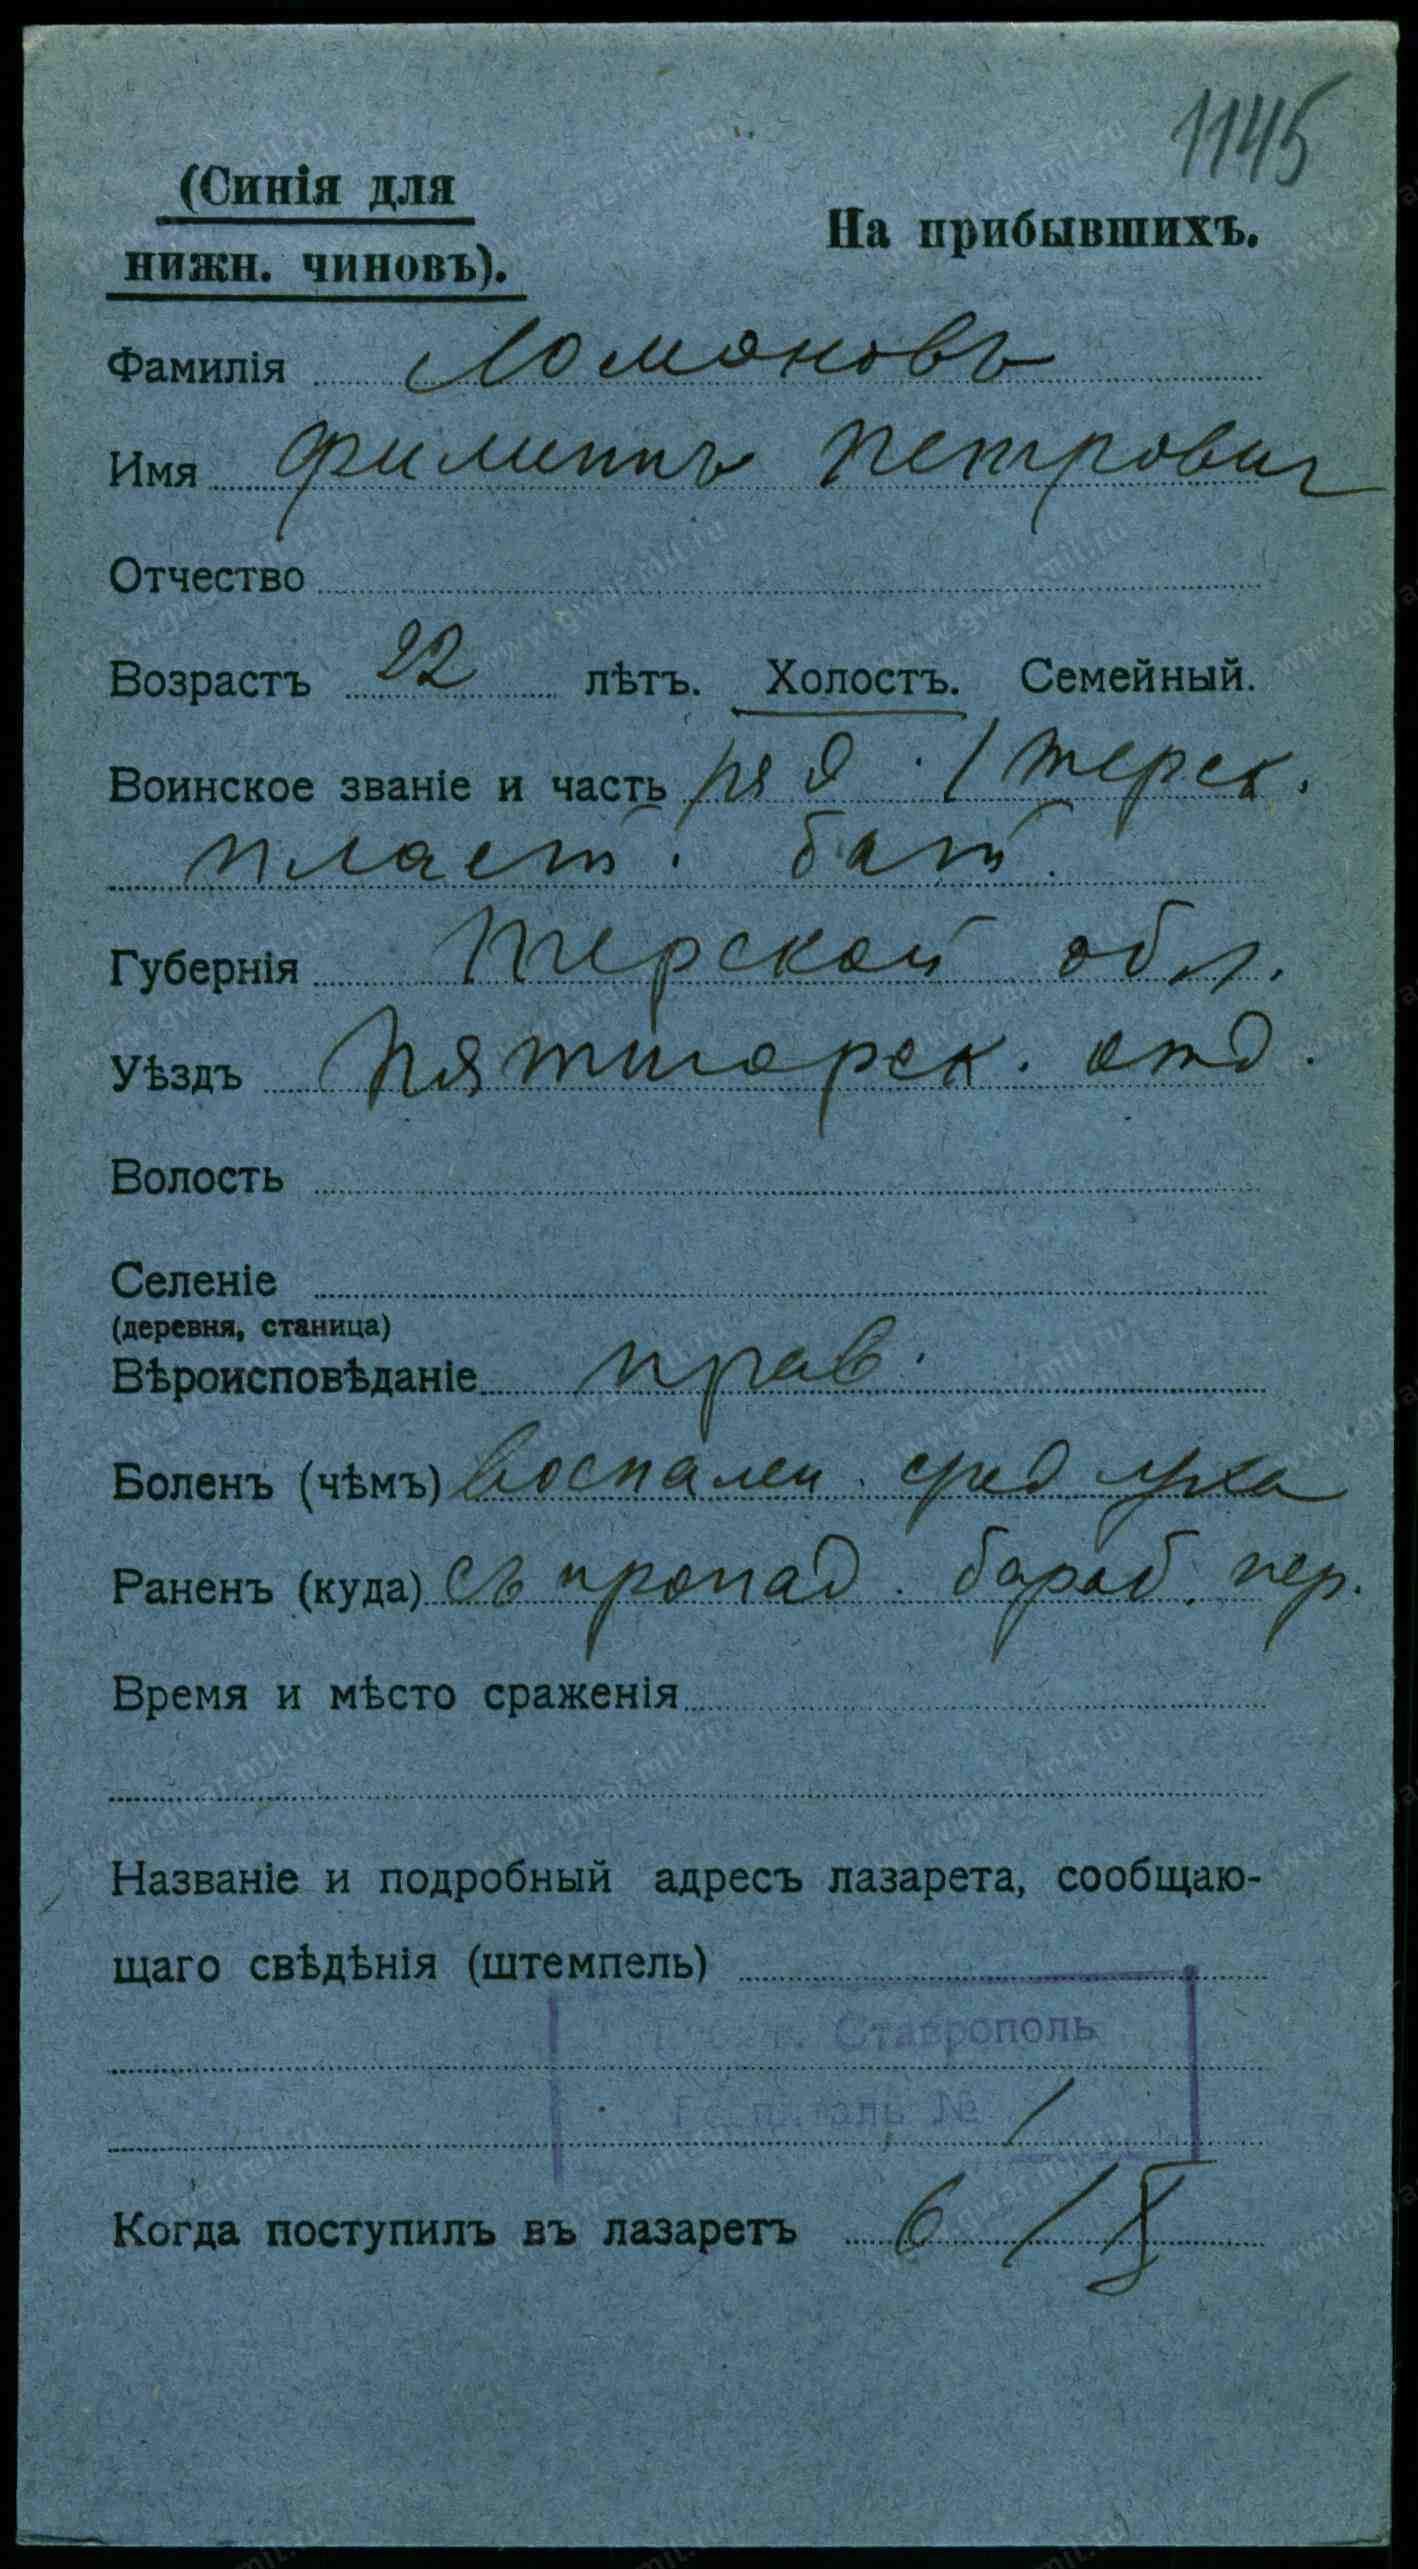 1145
(Синія для
нижн. чиновъ).
На прибывшихъ.
Фамилія Ломоновъ
Имя Филиппъ Петрович
Отчество
Возрастъ 22 лѣтъ. Холостъ. Семейный.
Воинское званіе и часть ряд. 1 Терск.
пласт. бат.
Губернія Терской обл.
Уѣздъ Пятигорск. отд.
Волость
Селеніе
(деревня, станица)
Вѣроисповѣданіе прав.
Боленъ (чѣмъ) воспален. сред уха
Раненъ (куда) съ пропад. бараб. пер.
Время и мѣсто сраженія
Названіе и подробный адресъ лазарета, сообщаю-
щаго свѣдѣнія (штемпель)
Ставрополь
№ 1
Когда поступилъ въ лазаретъ 6/X